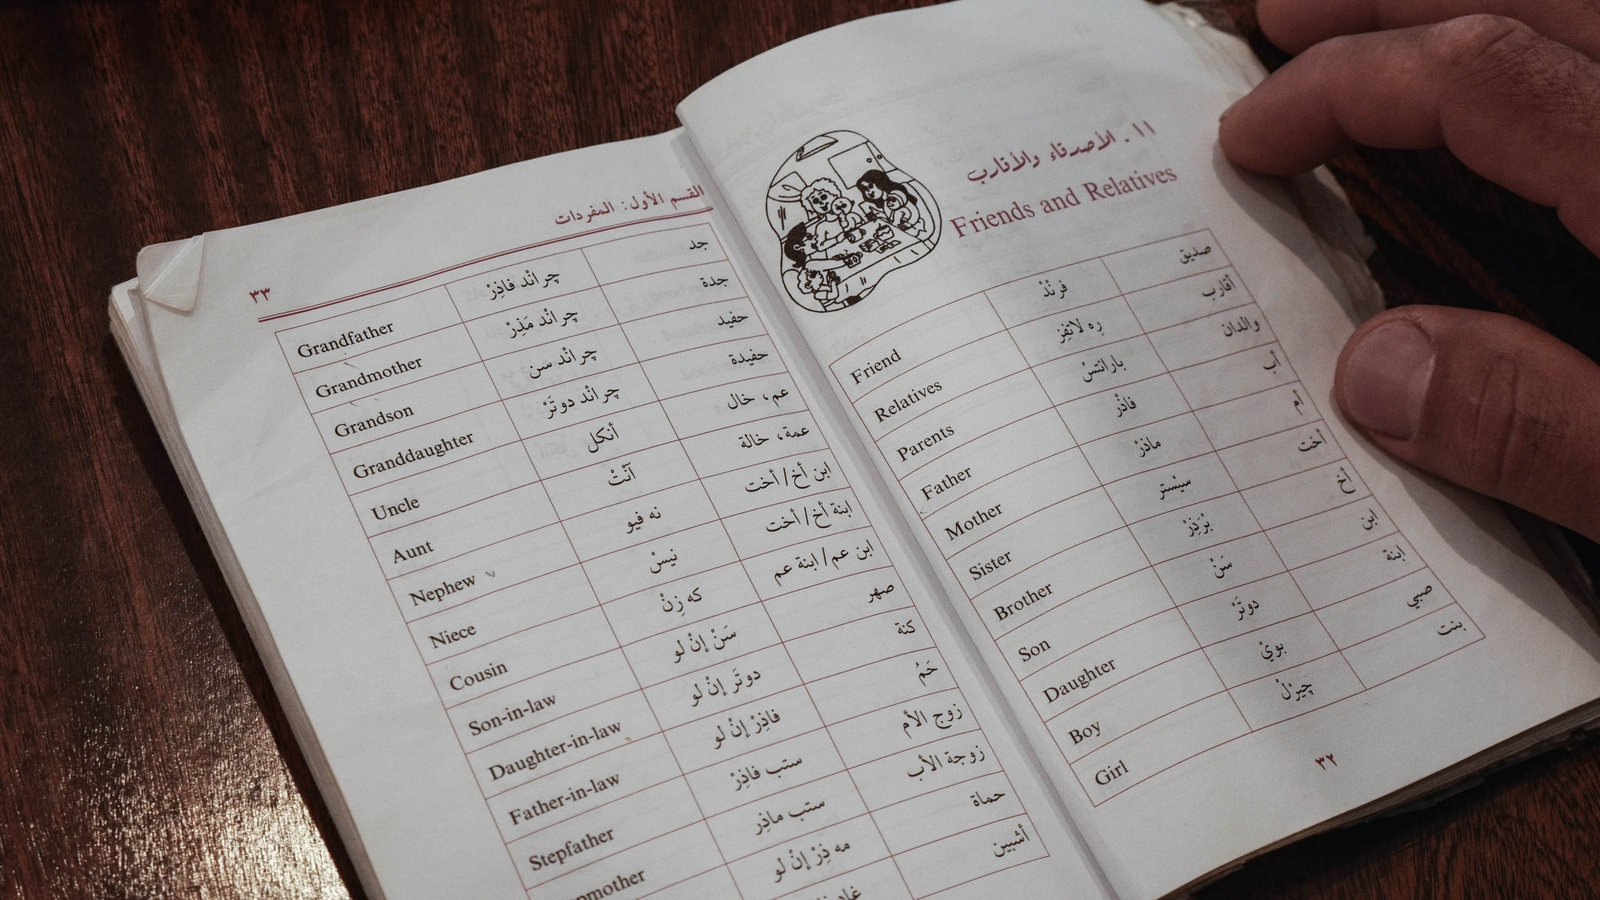 ١١ . الأصدقاء والأقارب
Friends and Relatives
صديق فرنْدْ Friend
أقارب رِه لاتِفِز Relatives
والدان بارانتسْ Parents
أب فاذْر Father
أم ماذرْ Mother
أخت سيْستر Sister
أخ بْرَذِرْ Brother
ابن سَنْ Son
ابنة دوتَرْ Daughter
صبي بويْ Boy
بنت چيْرْلْ Girl
٣٢
القسم الأول: المفردات
٣٣
جد چراندْ فاذِرْ Grandfather
جدة چراندْ مَذِرْ Grandmother
حفيد چراندْ سن Grandson
حفيدة چراندْ دوتَرْ Granddaughter
عم، خال أنكل Uncle
عمة، خالة آنْتْ Aunt
ابن أخ/أخت نه فيو Nephew
ابنة أخ/أخت نيسْ Niece
ابن عم/ابنة عم كه زِنْ Cousin
صهر سَنْ إنْ لو Son-in-law
كنة دوتَر إنْ لو Daughter-in-law
حَمُ فاذِرْ إنْ لو Father-in-law
زوج الأم ستب فاذِرْ Stepfather
زوجة الأب ستب ماذِر
حماة مه ذِرْ إنْ لو
أشبين